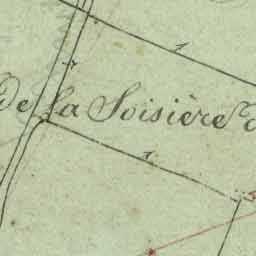 de la Soisière